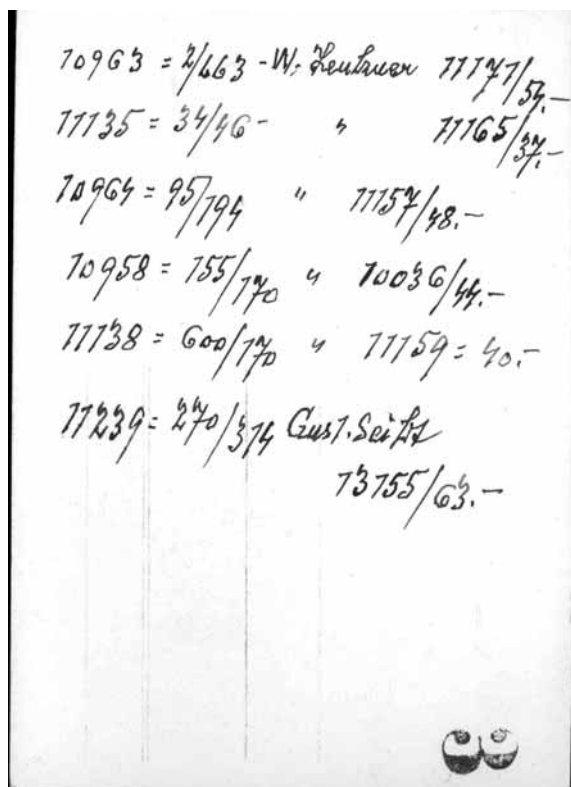 10963 = 2/463 - W. Zeutzner 11171/54.-
11135 = 34/46 - " 11165/37.-
10964 = 95/194 " 11157/48.-
10958 = 155/170 " 10036/44.-
11138 = 600/170 " 11159 = 40.-
11239 = 270/314 Gust. Seibt
13155/63.-